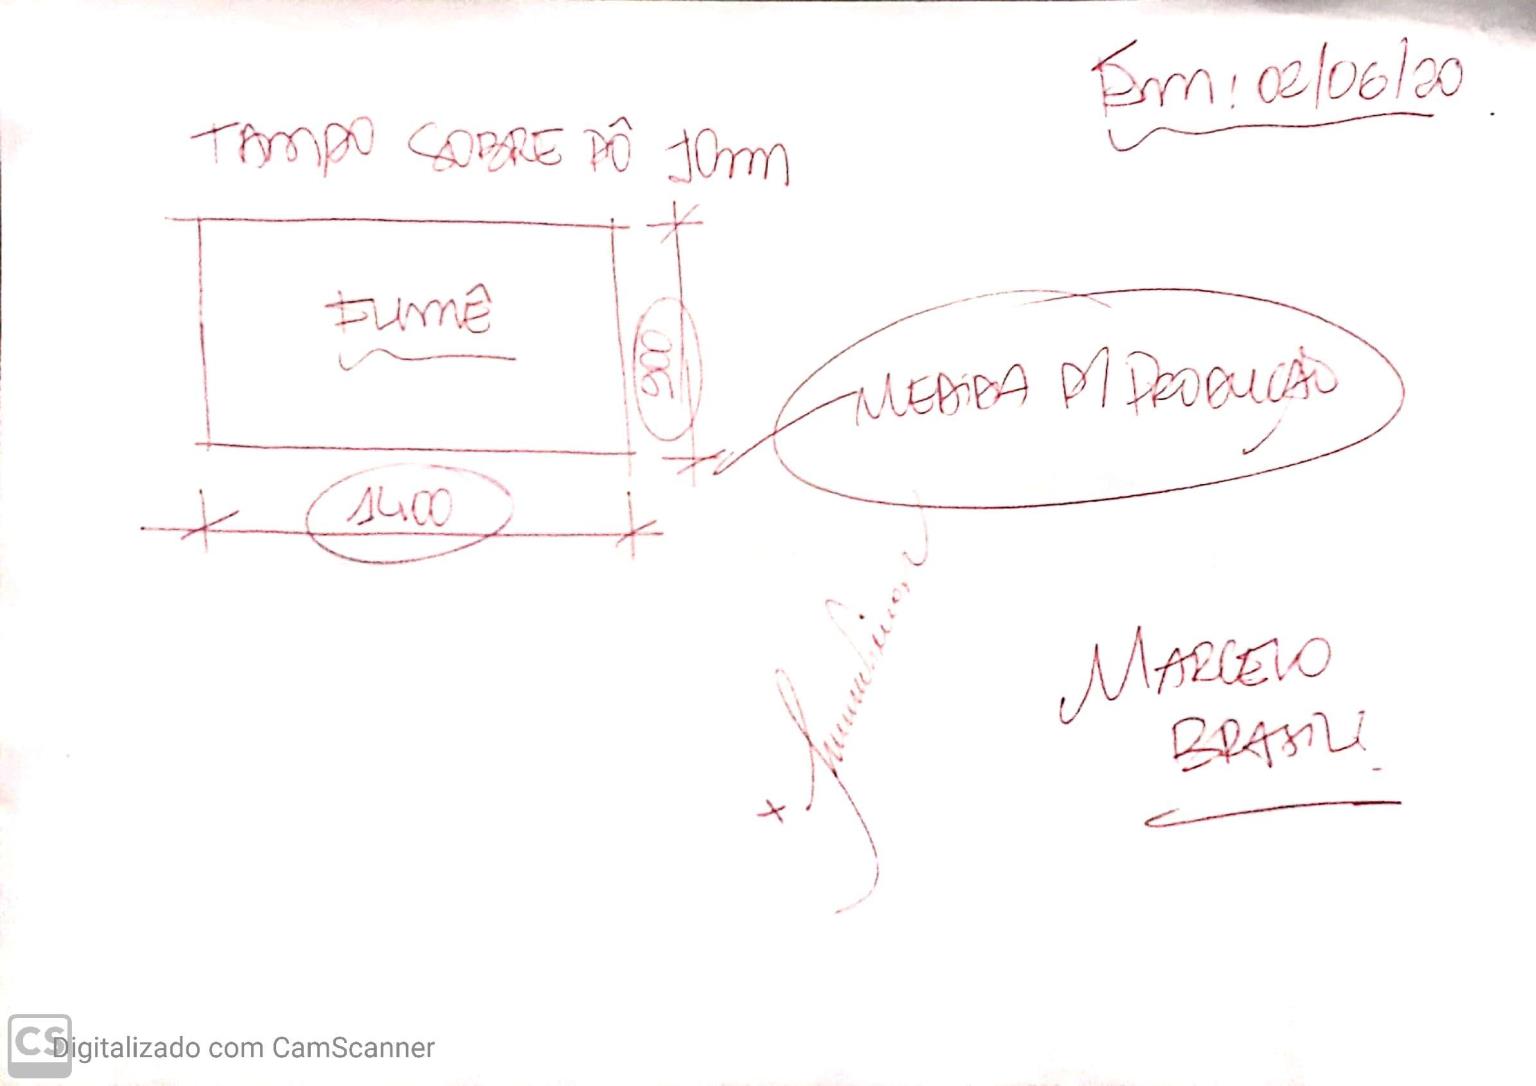 Em: 02/06/20
TAMPO SOBRE PÔ 10mm
FUMÊ
MEDIDA P/ PRODUÇÃO
1400
MARCELO
BRASILI
CS Digitalizado com CamScanner